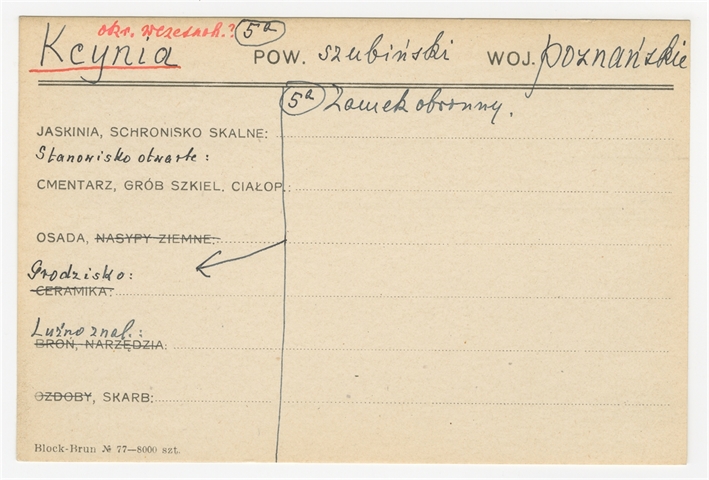 okr. wczesnoh.? 5a
Kcynia POW. szubiński WOJ. poznańskie
5a Zamek obronny.
JASKINIA, SCHRONISKO SKALNE:
Stanowisko otwarte:
CMENTARZ, GRÓB SZKIEL. CIAŁOP.:
OSADA, NASYPY ZIEMNE:
Grodzisko:
CERAMIKA:
Luźno znal.:
BROŃ, NARZĘDZIA:
OZDOBY, SKARB:
Block-Brun № 77—8000 szt.